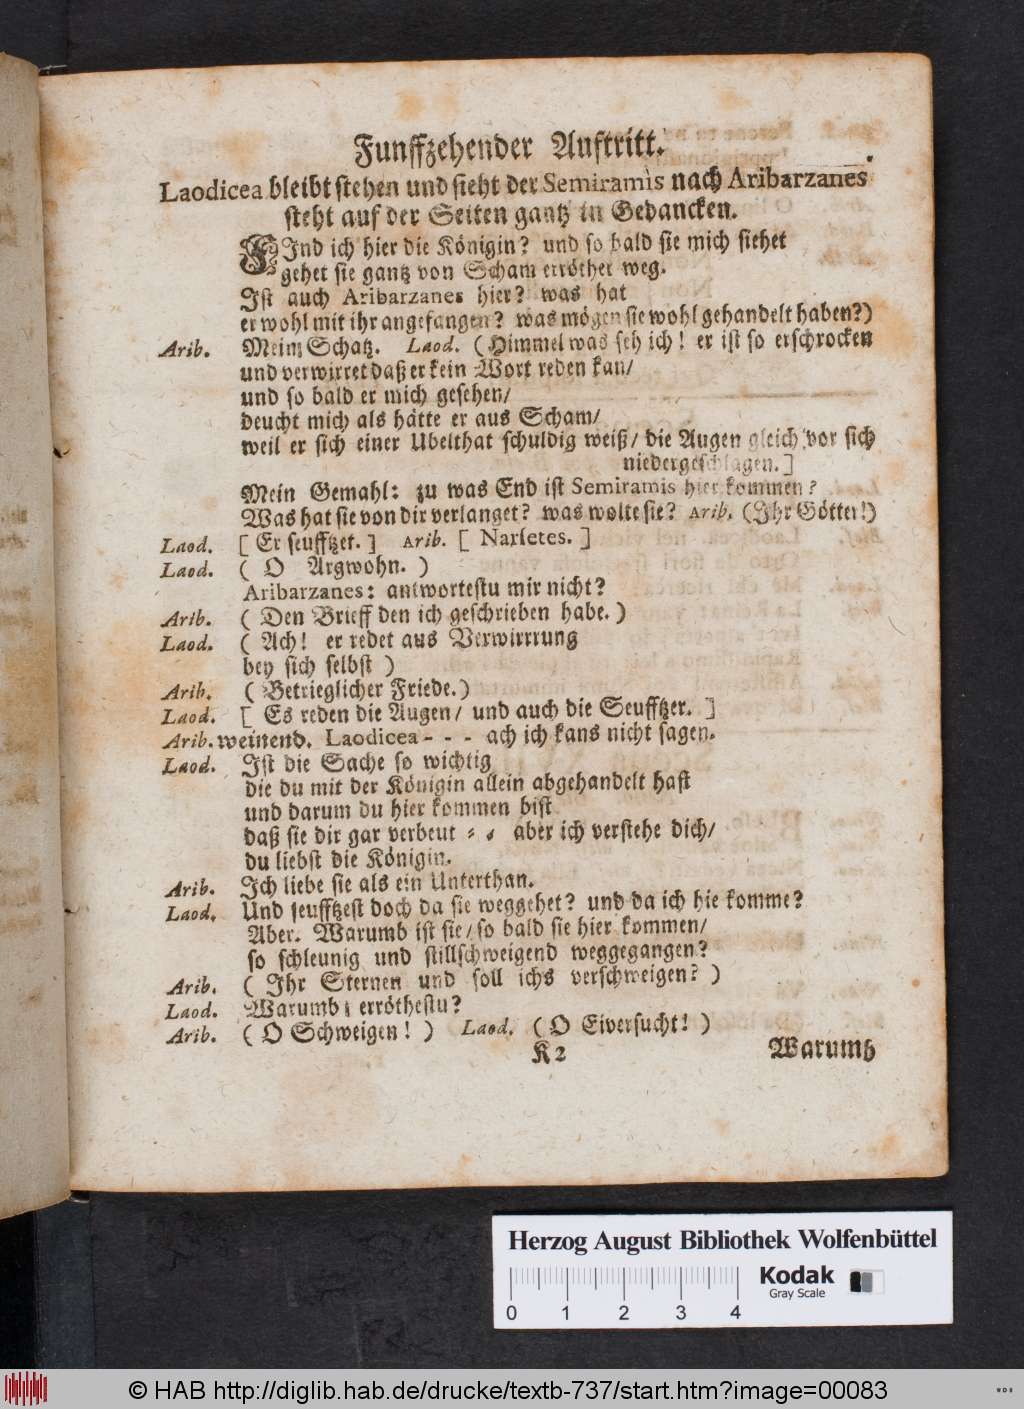 Funffzehender Auftritt.
Laodicea bleibt stehen und sieht der Semiramis nach Aribarzanes
steht auf der Seiten gantz in Gedancken.
FInd ich hier die Königin? und so bald sie mich siehet
gehet sie gantz von Scham erröthet weg.
Ist auch Aribarzanes hier? was hat
er wohl mit ihr angefangen? was mögen sie wohl gehandelt haben?)
Arib. Mein Schatz. Laod. (Himmel was seh ich! er ist so erschrocken
und verwirret daß er kein Wort reden kan/
und so bald er mich gesehen/
deucht mich als hätte er aus Scham/
weil er sich einer Ubelthat schuldig weiß/ die Augen gleich vor sich
niedergeschlagen.]
Mein Gemahl: zu was End ist Semiramis hier kommen?
Was hat sie von dir verlanget? was wolte sie? Arib. (Ihr Götter!)
Laod. [ Er seufftzet. ] Arib. [ Narsetes. ]
Laod. ( O Argwohn. )
Aribarzanes: antwortestu mir nicht?
Arib. ( Den Brieff den ich geschrieben habe. )
Laod. ( Ach! er redet aus Verwirrrung
bey sich selbst )
Arib. ( Betrieglicher Friede. )
Laod. [ Es reden die Augen/ und auch die Seufftzer. ]
Arib. weinend. Laodicea - - - ach ich kans nicht sagen.
Laod. Ist die Sache so wichtig
die du mit der Königin allein abgehandelt hast
und darum du hier kommen bist
daß sie dir gar verbeut = = aber ich verstehe dich/
du liebst die Königin.
Arib. Ich liebe sie als ein Unterthan.
Laod. Und seufftzest doch da sie weggehet? und da ich hie komme?
Aber. Warumb ist sie/ so bald sie hier kommen/
so schleunig und stillschweigend weggegangen?
Arib. ( Ihr Sternen und soll ichs verschweigen? )
Laod. Warumb erröthestu?
Arib. ( O Schweigen! ) Laod. ( O Eiversucht! )
K 2 Warumb
Herzog August Bibliothek Wolfenbüttel
Kodak
Gray Scale
0 1 2 3 4
© HAB http://diglib.hab.de/drucke/textb-737/start.htm?image=00083